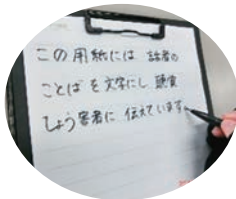 この用紙には 話者の
ことばを文字にし 聴覚
しょう害者に 伝えています。